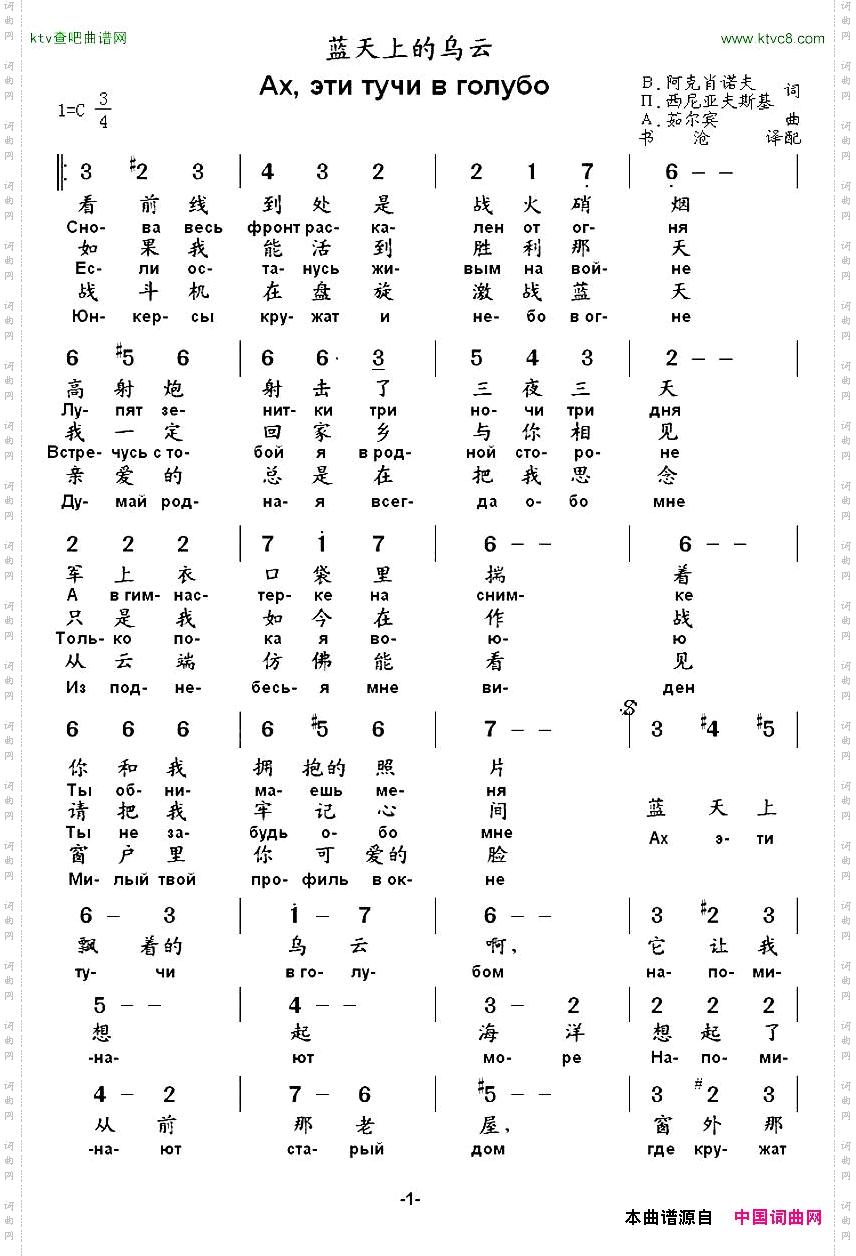 ktv查吧曲谱网
www.ktvc8.com
蓝天上的乌云
Ах, эти тучи в голубо
1=C 3/4
В. 阿克肖诺夫 词
П. 西尼亚夫斯基
А. 茹尔宾 曲
书 沧 译配
3 #2 3 | 4 3 2 | 2 1 7 | 6 - - |
看 前 线 到 处 是 战 火 硝 烟
Сно- ва весь фронт рас- ка- лен от ог- ня
如 果 我 能 活 到 胜 利 那 天
Ес- ли ос- та- нусь жи- вым на вой- не
战 斗 机 在 盘 旋 激 战 蓝 天
Юн- кер- сы кру- жат и не- бо в ог- не
6 #5 6 | 6 6· 3 | 5 4 3 | 2 - - |
高 射 炮 射 击 了 三 夜 三 天
Лу- пят зе- нит- ки три но- чи три дня
我 一 定 回 家 乡 与 你 相 见
Встре- чусь с то- бой я в род- ной сто- ро- не
亲 爱 的 总 是 在 把 我 思 念
Ду- май род- на- я всег- да о- бо мне
2 2 2 | 7 i 7 | 6 - - | 6 - - |
军 上 衣 口 袋 里 揣 着
А в гим- нас- тер- ке на сним- ке
只 是 我 如 今 在 作 战
Толь- ко по- ка я во- ю- ю
从 云 端 仿 佛 能 看 见
Из под- не- бесь- я мне ви- ден
6 6 6 | 6 #5 6 | 7 - - | 3 #4 #5 |
你 和 我 拥 抱的 照 片
Ты об- ни- ма- ешь ме- ня
请 把 我 牢 记 心 间
蓝 天 上
Ты не за- будь о- бо мне
Ах э- ти
窗 户 里 你 可 爱的 脸
Ми- лый твой про- филь в ок- не
6 - 3 | i - 7 | 6 - - | 3 #2 3 |
飘 着的 乌 云 啊, 它 让 我
ту- чи в го- лу- бом на- по- ми-
5 - - | 4 - - | 3 - 2 | 2 2 2 |
想 起 海 洋 想 起 了
-на- ют мо- ре На- по- ми-
4 - 2 | 7 - 6 | #5 - - | 3 #2 3 |
从 前 那 老 屋, 窗 外 那
-на- ют ста- рый дом где кру- жат
-1-
本曲谱源自 中国词曲网
词曲网